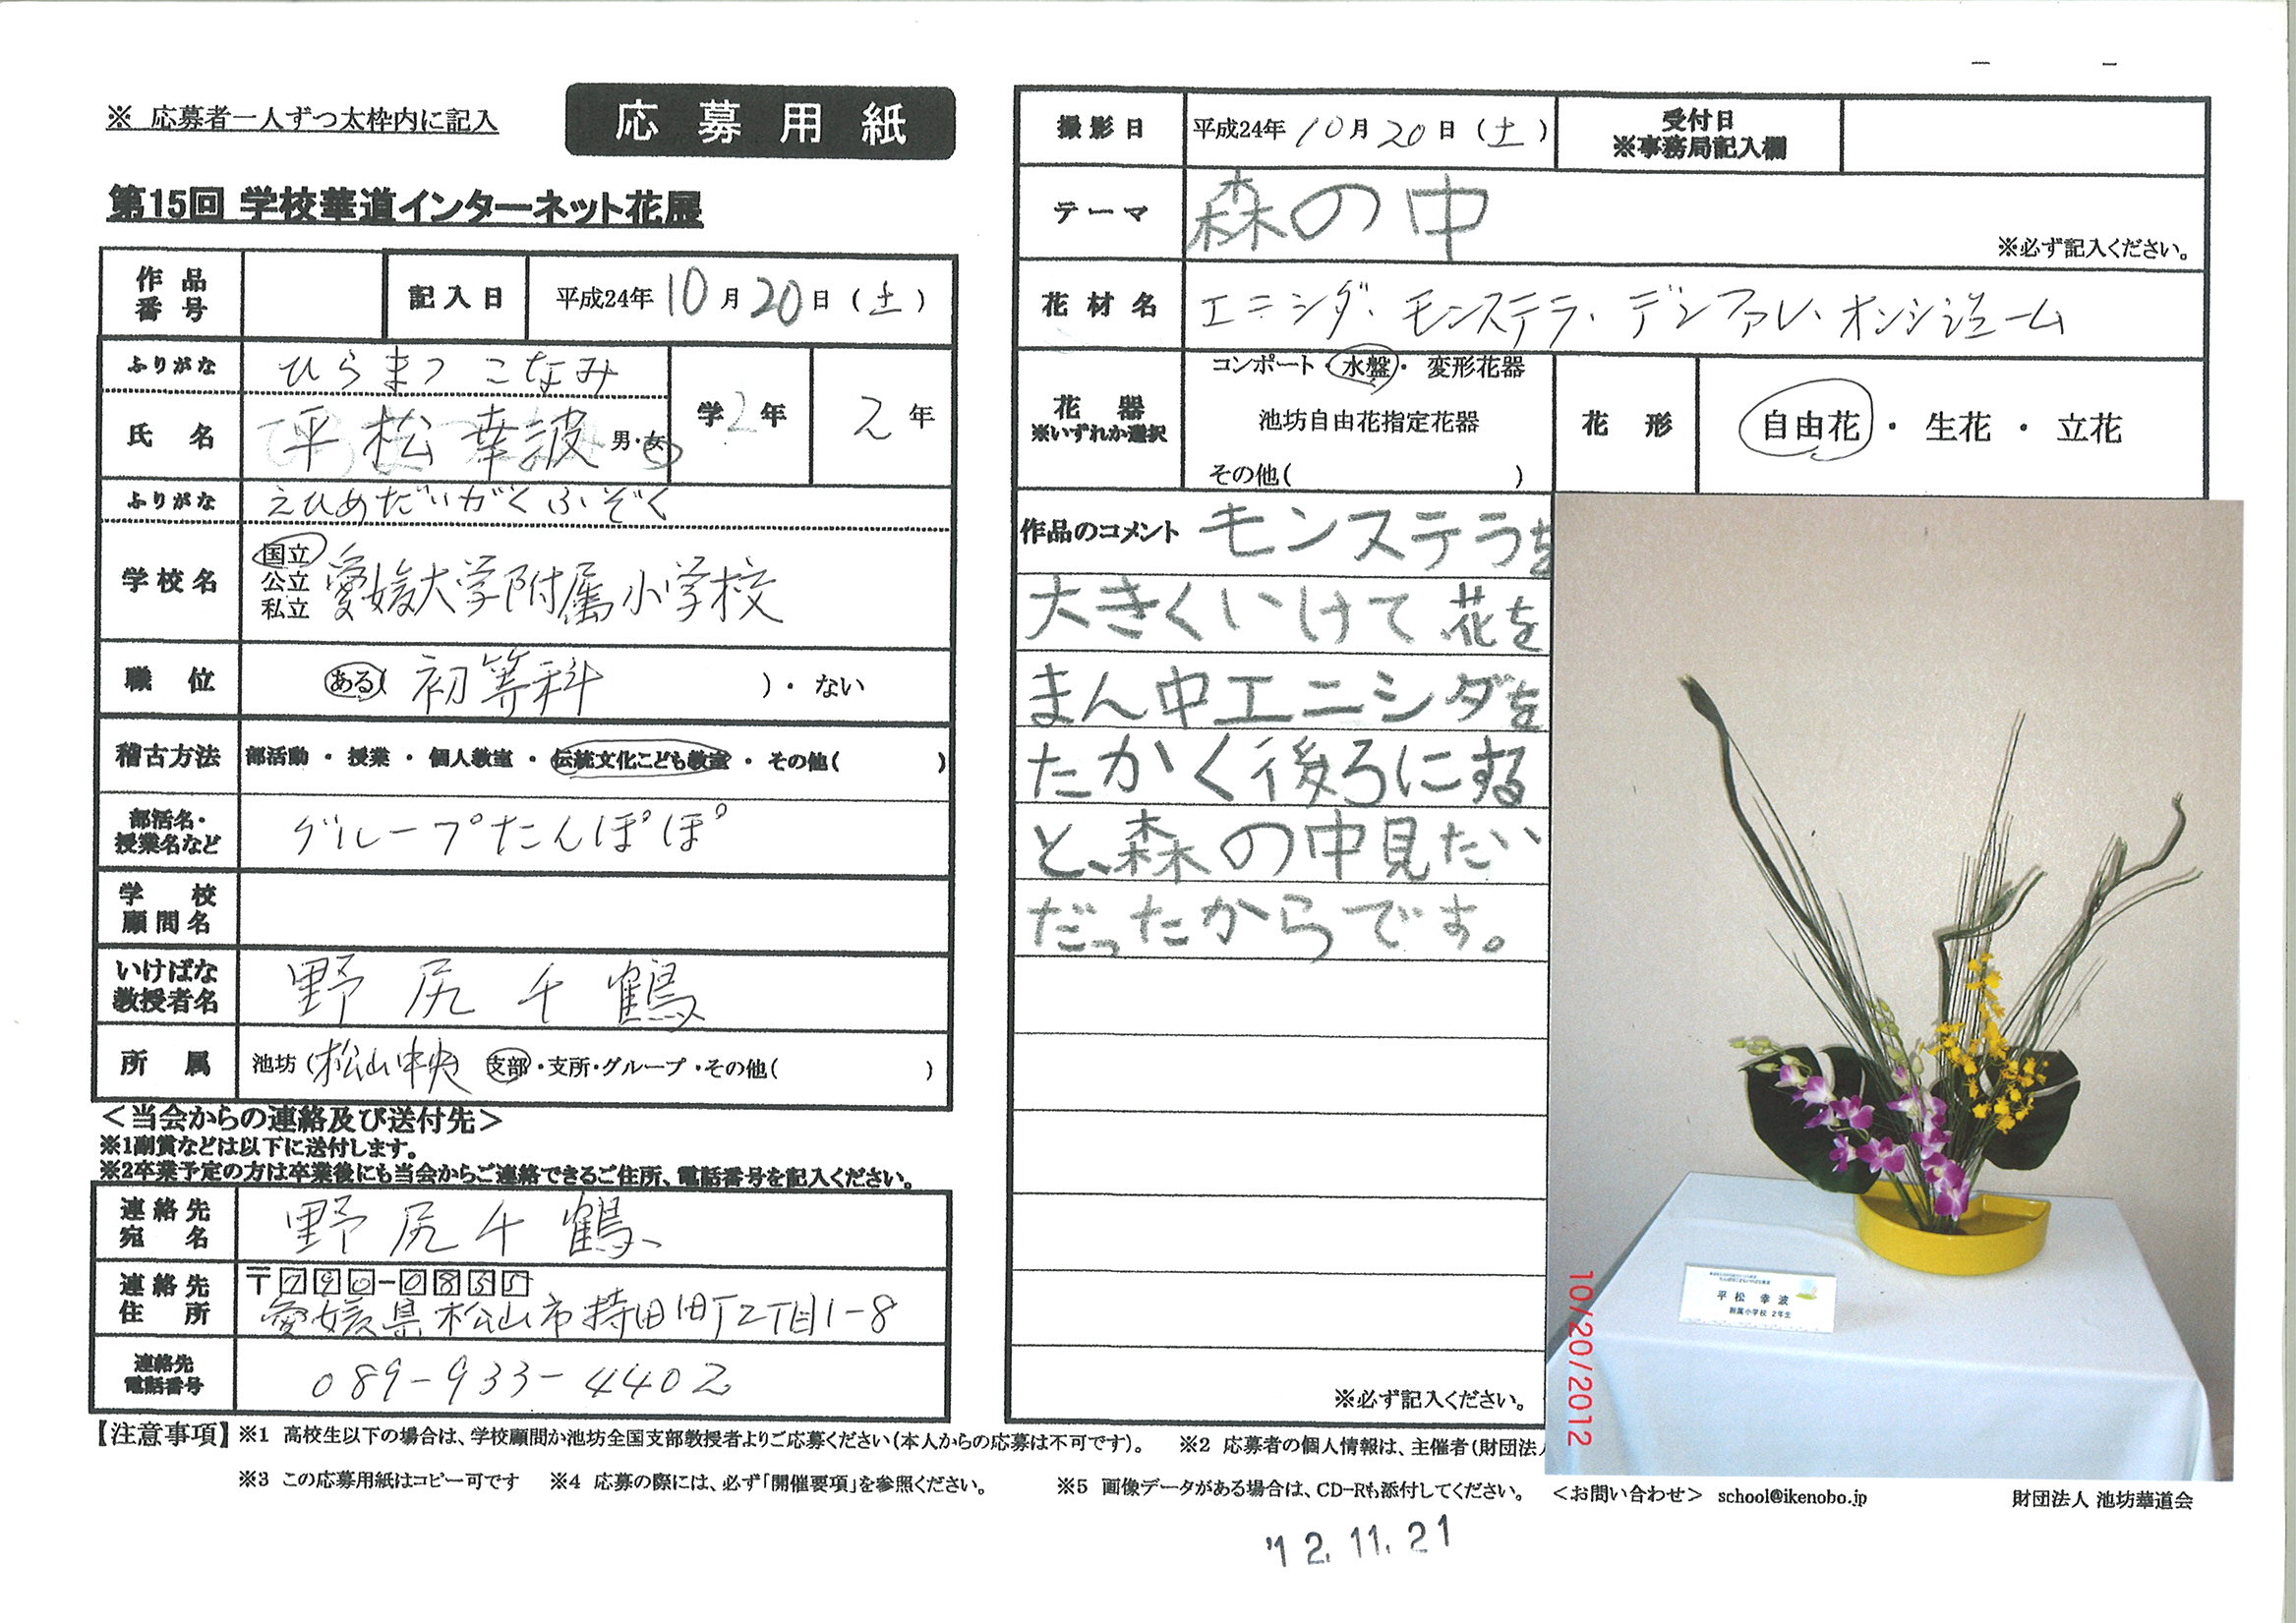 ※ 応募者一人ずつ太枠内に記入
応募用紙
第15回 学校華道インターネット花展
作品番号
記入日 平成24年10月20日(土)
ふりがな ひらまつ こなみ
氏名 平松幸波 男・女
学2年 2年
ふりがな えひめだいがくふぞく
学校名 国立 公立 私立 愛媛大学附属小学校
職位 ある(初等科)・ない
稽古方法 部活動・授業・個人教室・伝統文化こども教室・その他( )
部活名・授業名など グループたんぽぽ
学校顧問名
いけばな教授者名 野尻千鶴
所属 池坊(松山中央 支部・支所・グループ・その他( )
＜当会からの連絡及び送付先＞
※1副賞などは以下に送付します。
※2卒業予定の方は卒業後にも当会からご連絡できるご住所、電話番号を記入ください。
連絡先宛名 野尻千鶴
連絡先住所 〒790-0855
愛媛県松山市持田町2丁目1-8
連絡先電話番号 089-933-4402
撮影日 平成24年10月20日(土)
受付日
※事務局記入欄
テーマ 森の中
※必ず記入ください。
花材名 エニシダ・モンステラ・デンファレ・オンシジューム
花器
※いずれか選択
コンポート・水盤・変形花器
池坊自由花指定花器
その他( )
花形 自由花・生花・立花
作品のコメント モンステラを
大きくいけて花を
まん中エニシダを
たかく後ろにする
と、森の中見たい
だったからです。
※必ず記入ください。
平松 幸波
附属小学校 2年生
10/20/2012
【注意事項】※1 高校生以下の場合は、学校顧問か池坊全国支部教授者よりご応募ください(本人からの応募は不可です)。 ※2 応募者の個人情報は、主催者(財団法人
※3 この応募用紙はコピー可です ※4 応募の際には、必ず「開催要項」を参照ください。 ※5 画像データがある場合は、CD-Rも添付してください。 ＜お問い合わせ＞ school@ikenobo.jp 財団法人 池坊華道会
'12.11.21